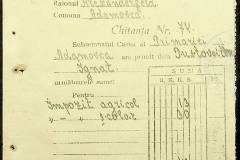 Raionul Alexanderfeld
Comuna Adamovca
Chitanța Nr. 74.
Subsemnatul Casier al Primăriei
Adamovca am primit dela
Ignat.
următoarele sume:
SUMA
Pentru
Impozit agricol 13
" școlar 30